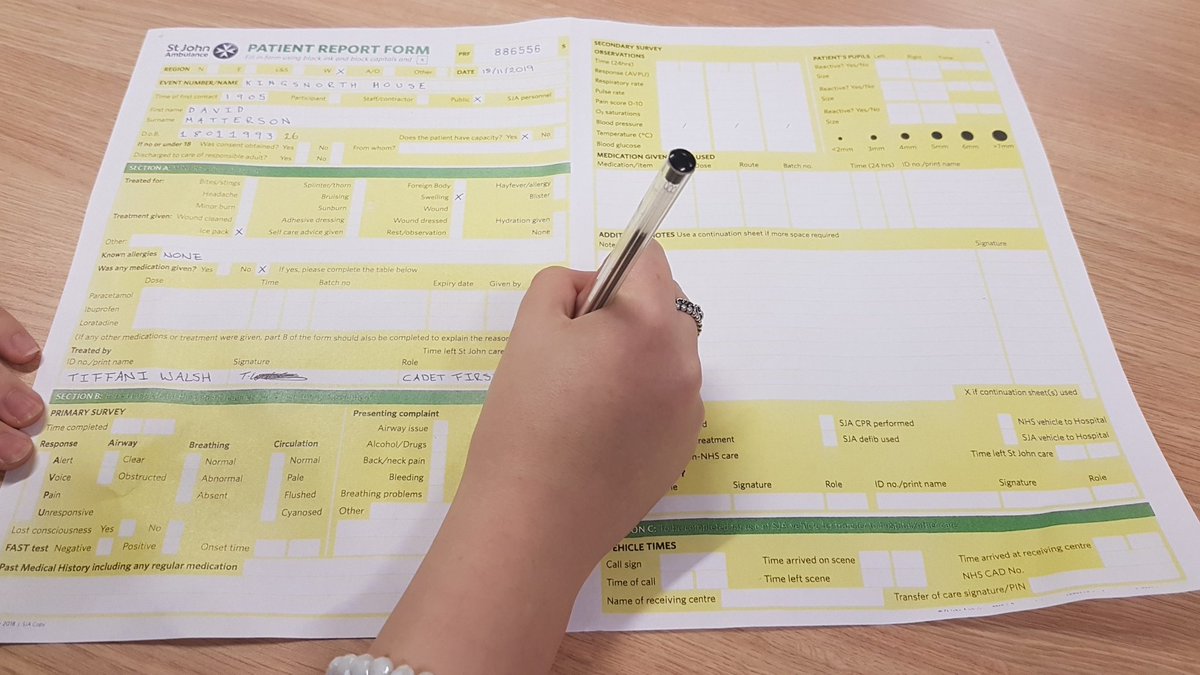 St John
Ambulance
PATIENT REPORT FORM
Fill in form using black ink and block capitals and x
PRF 886556 S
REGION N E L&S W X A/D Other DATE 18/11/2019
EVENT NUMBER/NAME KINGSNORTH HOUSE
Time of first contact 1905 Participant Staff/contractor Public X SJA personnel
First name DAVID
Surname MATTERSON
D.o.B. 18011993 26 Does the patient have capacity? Yes X No
If no or under 18 Was consent obtained? Yes No From whom?
Discharged to care of responsible adult? Yes No
SECTION A:
Treated for: Bites/stings Splinter/thorn Foreign Body Hayfever/allergy
Headache Bruising Swelling X Blister
Minor burn Sunburn Wound
Treatment given: Wound cleaned Adhesive dressing Wound dressed Hydration given
Ice pack X Self care advice given Rest/observation None
Other:
Known allergies NONE
Was any medication given? Yes No X If yes, please complete the table below
Dose Time Batch no Expiry date Given by
Paracetamol
Ibuprofen
Loratadine
(If any other medications or treatment were given, part B of the form should also be completed to explain the reason
Treated by Time left St John care
ID no./print name Signature Role
TIFFANI WALSH CADET FIRS
SECTION B:
PRIMARY SURVEY Presenting complaint
Time completed Airway issue
Response Airway Breathing Circulation Alcohol/Drugs
Alert Clear Normal Normal Back/neck pain
Voice Obstructed Abnormal Pale Bleeding
Pain Absent Flushed Breathing problems
Unresponsive Cyanosed Other
Lost consciousness Yes No
FAST test Negative Positive Onset time
Past Medical History including any regular medication
2018 | SJA Copy
SECONDARY SURVEY
OBSERVATIONS PATIENT'S PUPILS Left Right Time
Time (24hrs) Reactive? Yes/No
Response (AVPU) Size
Respiratory rate Reactive? Yes/No
Pulse rate Size
Pain score 0-10 Reactive? Yes/No
O₂ saturations Size
Blood pressure / / /
Temperature (°C)
Blood glucose <2mm 3mm 4mm 5mm 6mm >7mm
MEDICATION GIVEN USED
Medication/item Dose Route Batch no. Time (24 hrs) ID no./print name
ADDIT NOTES Use a continuation sheet if more space required
Note Signature
X if continuation sheet(s) used
d SJA CPR performed NHS vehicle to Hospital
reatment SJA defib used SJA vehicle to Hospital
n-NHS care Time left St John care
Signature Role ID no./print name Signature Role
ON C:
VEHICLE TIMES
Call sign Time arrived on scene Time arrived at receiving centre
Time of call Time left scene NHS CAD No.
Name of receiving centre Transfer of care signature/PIN